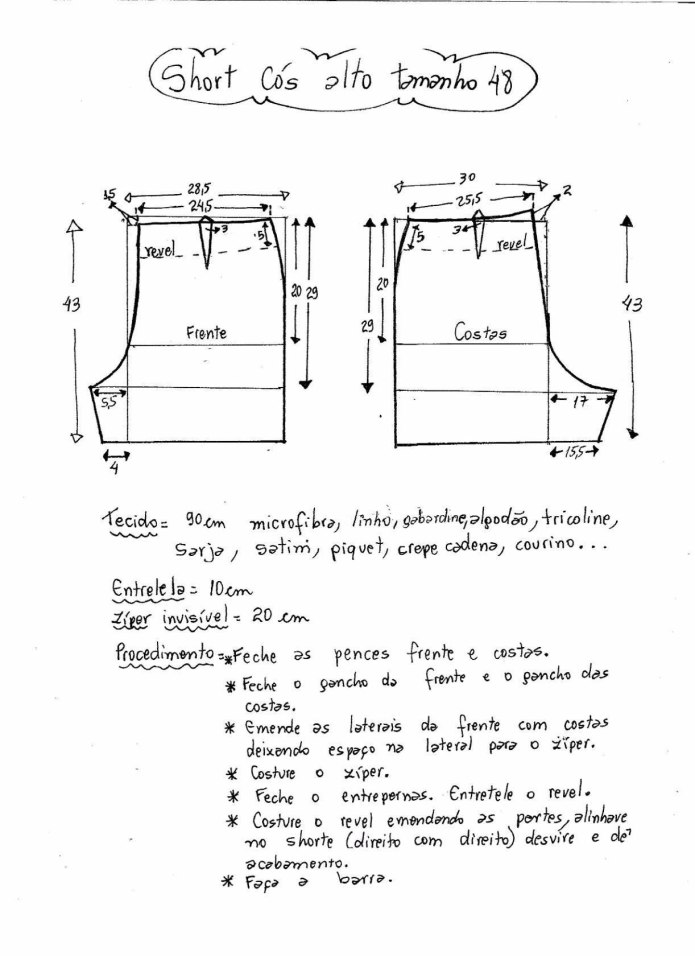 Short Cós alto tamanho 48
28,5
24,5
1,5
3
5
revel
20
29
43
Frente
5,5
4
30
25,5
2
3
5
revel
20
29
43
Costas
17
15,5
Tecido = 90 cm microfibra, linho, gabardine, algodão, tricoline,
sarja, satim, piquet, crepe cadena, courino...
Entretela = 10 cm
Zíper invisível = 20 cm
Procedimento = * Feche as pences frente e costas.
* Feche o gancho da frente e o gancho das
costas.
* Emende as laterais da frente com costas
deixando espaço na lateral para o zíper.
* Costure o zíper.
* Feche o entrepernas. Entretele o revel.
* Costure o revel emendando as partes, alinhave
no shorte (direito com direito) desvire e dê
acabamento.
* Faça a barra.